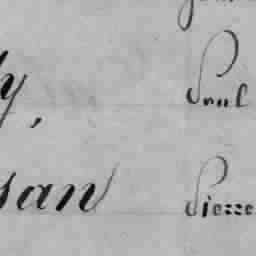 y, Paul
san Pierre